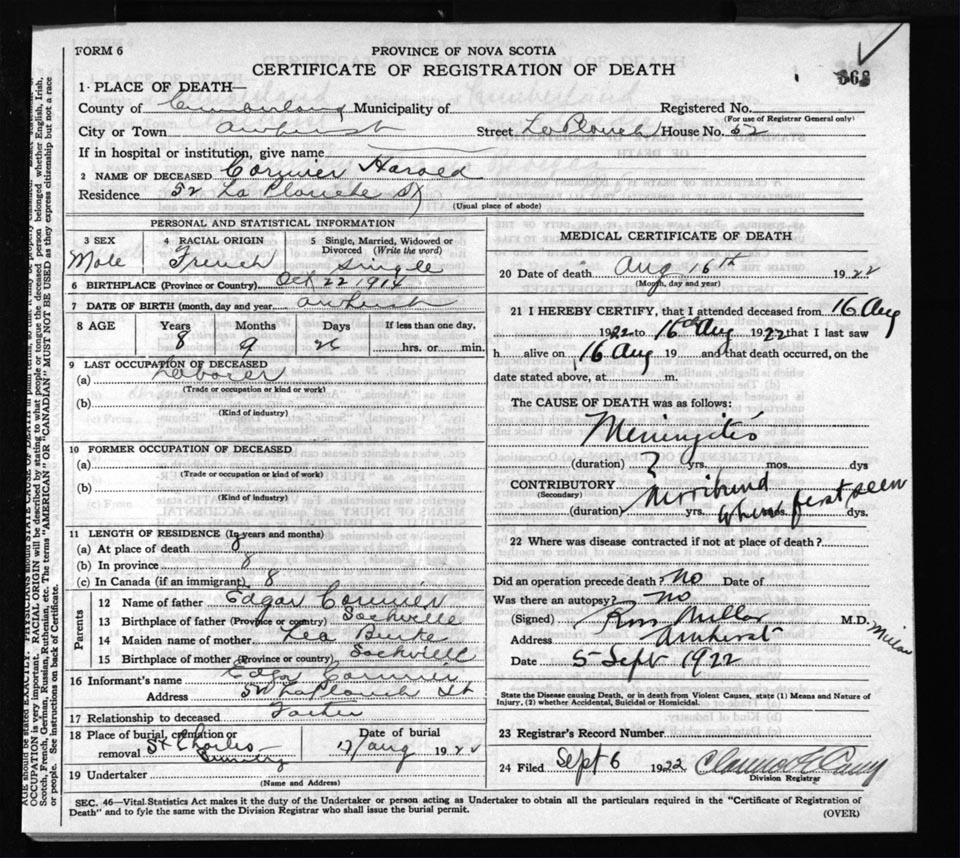 FORM 6
PROVINCE OF NOVA SCOTIA
CERTIFICATE OF REGISTRATION OF DEATH
1· PLACE OF DEATH—
County of Cumberland Municipality of Registered No.
(For use of Registrar General only)
City or Town Amherst Street La Planch House No. 52
If in hospital or institution, give name
2 NAME OF DECEASED Cormier Harold
Residence 52 La Planche St
(Usual place of abode)
PERSONAL AND STATISTICAL INFORMATION
3 SEX Male
4 RACIAL ORIGIN French
5 Single, Married, Widowed or Divorced (Write the word) Single
6 BIRTHPLACE (Province or Country) Oct 22 1914
7 DATE OF BIRTH (month, day and year) Amherst
8 AGE Years 8 Months 9 Days 26 If less than one day, hrs. or min.
9 LAST OCCUPATION OF DECEASED
(a) Laborer
(Trade or occupation or kind or work)
(b)
(Kind of industry)
10 FORMER OCCUPATION OF DECEASED
(a)
(Trade or occupation or kind of work)
(b)
(Kind of industry)
11 LENGTH OF RESIDENCE (In years and months)
(a) At place of death 8
(b) In province 8
(c) In Canada (if an immigrant) 8
Parents
12 Name of father Edgar Cormier
13 Birthplace of father (Province or country) Sackville
14 Maiden name of mother Lea Burke
15 Birthplace of mother (Province or country) Sackvill
16 Informant's name Edgar Cormier
Address 52 La Planch St
17 Relationship to deceased Father
18 Place of burial, cremation or removal St Charles
Date of burial 17/Aug 1922
19 Undertaker
(Name and Address)
MEDICAL CERTIFICATE OF DEATH
20 Date of death Aug 16th 1922
(Month, day and year)
21 I HEREBY CERTIFY, that I attended deceased from 16 Aug
1922 to 16th Aug 1922 that I last saw
h alive on 16 Aug 19 and that death occurred, on the
date stated above, at m.
The CAUSE OF DEATH was as follows:
Meningitis
(duration) ? yrs. mos. dys
CONTRIBUTORY Morribund
(Secondary) when first seen
(duration) yrs. mos. dys.
22 Where was disease contracted if not at place of death?
Did an operation precede death? No Date of
Was there an autopsy? No
(Signed) Ross Millar M.D.
Address Amherst
Date 5 Sept 1922
State the Disease causing Death, or in death from Violent Causes, state (1) Means and Nature of
Injury, (2) whether Accidental, Suicidal or Homicidal.
23 Registrar's Record Number
24 Filed Sept 6 1922
Division Registrar
SEC. 46—Vital Statistics Act makes it the duty of the Undertaker or person acting as Undertaker to obtain all the particulars required in the "Certificate of Registration of
Death" and to fyle the same with the Division Registrar who shall issue the burial permit. (OVER)
OCCUPATION is very important. RACIAL ORIGIN will be described by stating to what people or tongue the deceased person belonged whether English, Irish,
Scotch, French, German, Russian, Ruthenian, etc. The terms "AMERICAN" OR "CANADIAN" MUST NOT BE USED as they express citizenship but not a race
or people. See instructions on back of Certificate.